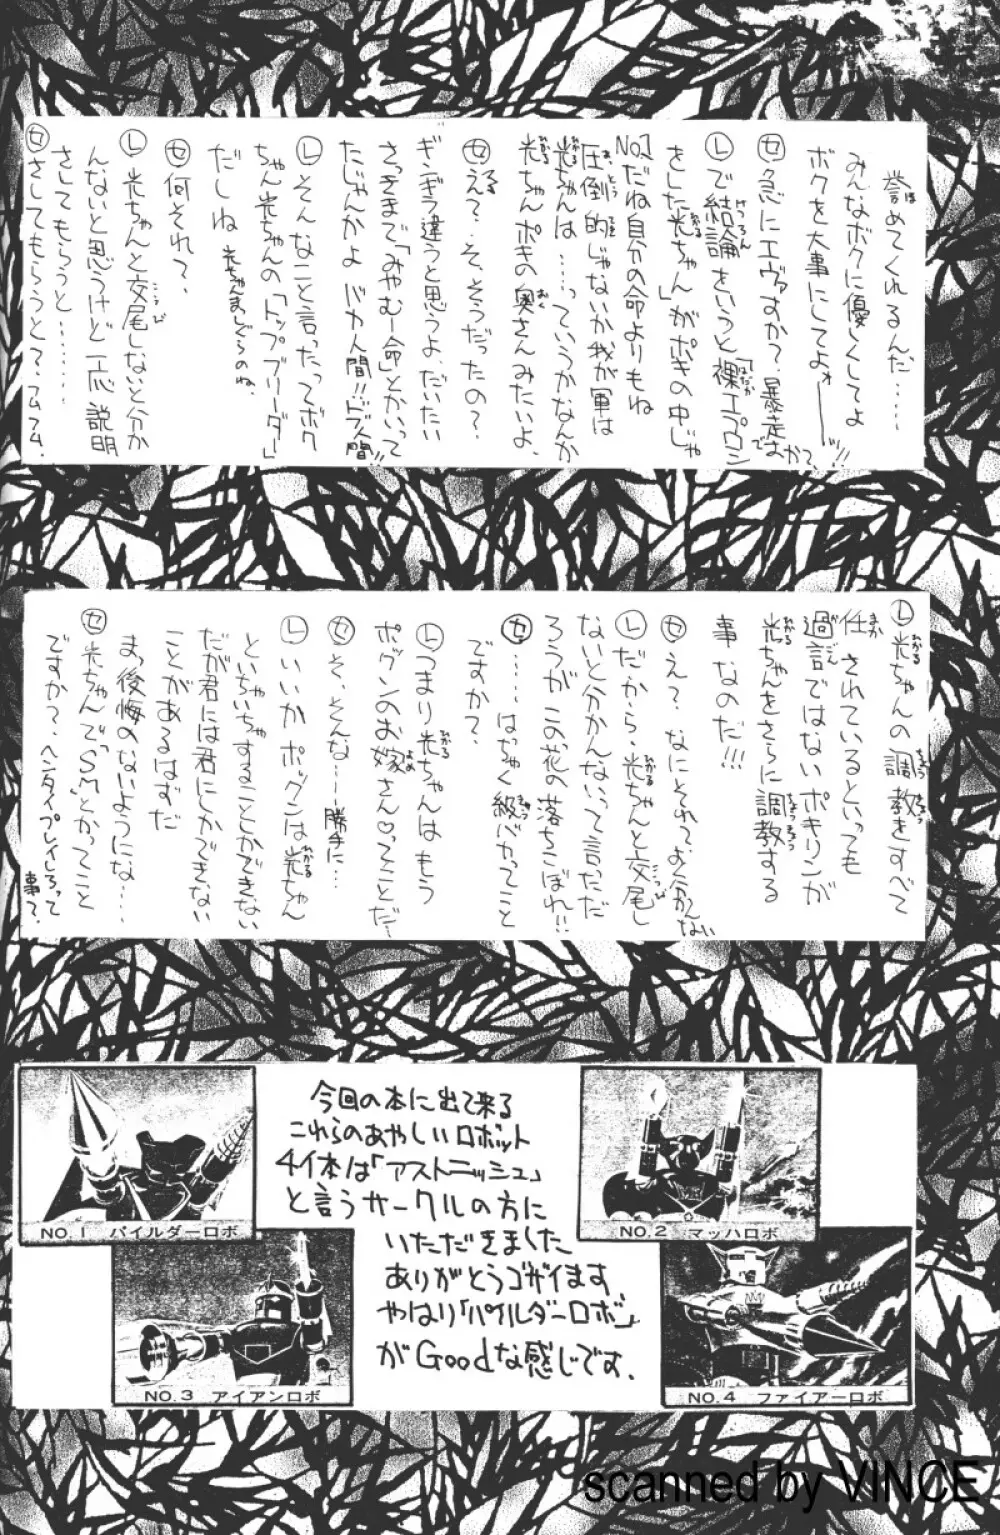 誉めてくれるんだ……
みんなボクに優しくしてよ
ボクを大事にしてよォ――!!
㋝急にエヴァすか？暴走すか？
㋹で結論をいうと「裸エプロン
をした光ちゃん」がポキの中じゃ
No.1だね自分の命よりもね
圧倒的じゃないか我が軍は
光ちゃんは……っていうかなんか
光ちゃんポキの奥さんみたいよ。
㋝え？そ、そうだったの？
ギンギラ違うと思うよ、だいたい
さっきまで「みやむー命」とかいって
たじゃんかよ バカ人間!!ドブ人間!!
㋹そんなこと言ったってボク
ちゃん光ちゃんの「トップブリーダー」
だしね 光ちゃんましぐらのね。
㋝何それ？
㋹光ちゃんと交尾しないと分か
んないと思うけど一応説明
さしてもらうと………
㋝さしてもらうと？フムフム。
㋹光ちゃんの調教をすべて
任されているといっても
過言ではないポキリンが
光ちゃんをさらに調教する
事なのだ!!!
㋝え？なにそれ？よく分かんない
㋹だから、光ちゃんと交尾し
ないと分かんないって言っただ
ろうが この、花の落ちこぼれ!!
㋝……はぢゃく級バカってこと
ですか？
㋹つまり光ちゃんはもう
ポッグンのお嫁さん♡ってことだ…
㋝そ、そんな…勝手に…
㋹いいか ポッグンは光ちゃん
といちゃいちゃすることしかできない
だが君には君にしかできない
ことがあるはずだ
まっ後悔のないようにな…
㋝光ちゃんで"SM"とかってこと
ですか？ヘンタイプレイしろって
事？。
今回の本に出て来る
これらのあやしいロボット
4体は「アストニッシュ」
と言うサークルの方に
いただきました
ありがとうゴザイます
やはり「パイルダーロボ」
がGoodな感じです。
NO.1 パイルダーロボ
NO.2 マッハロボ
NO.3 アイアンロボ
NO.4 ファイアーロボ
scanned by VINCE